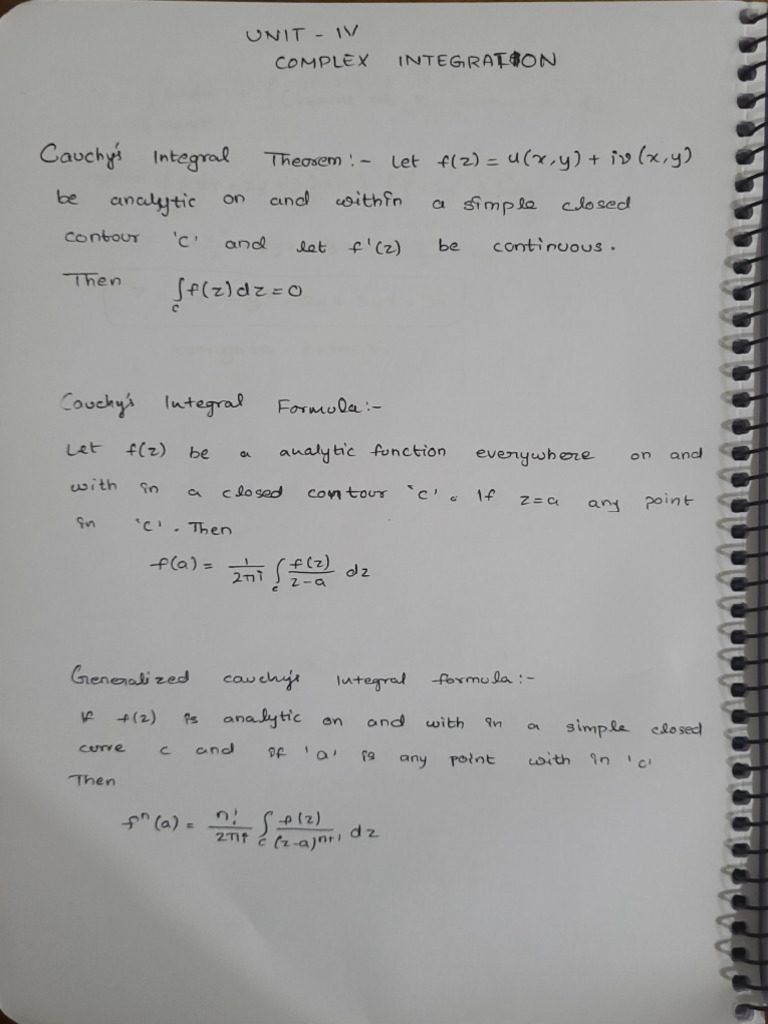 UNIT - IV
COMPLEX INTEGRATION
Cauchy's Integral Theorem :- Let f(z) = u(x,y) + iv(x,y)
be analytic on and within a simple closed
contour 'c' and let f'(z) be continuous.
Then ∫_c f(z) dz = 0
Cauchy's Integral Formula :-
Let f(z) be a analytic function everywhere on and
with in a closed contour 'c'. If z=a any point
in 'c'. Then
f(a) = 1/2πi ∫_c f(z)/(z-a) dz
Generalized cauchy's Integral formula :-
If f(z) is analytic on and with in a simple closed
curve c and if 'a' is any point with in 'c'
Then
f^n(a) = n!/2πi ∫_c f(z)/(z-a)^{n+1} dz